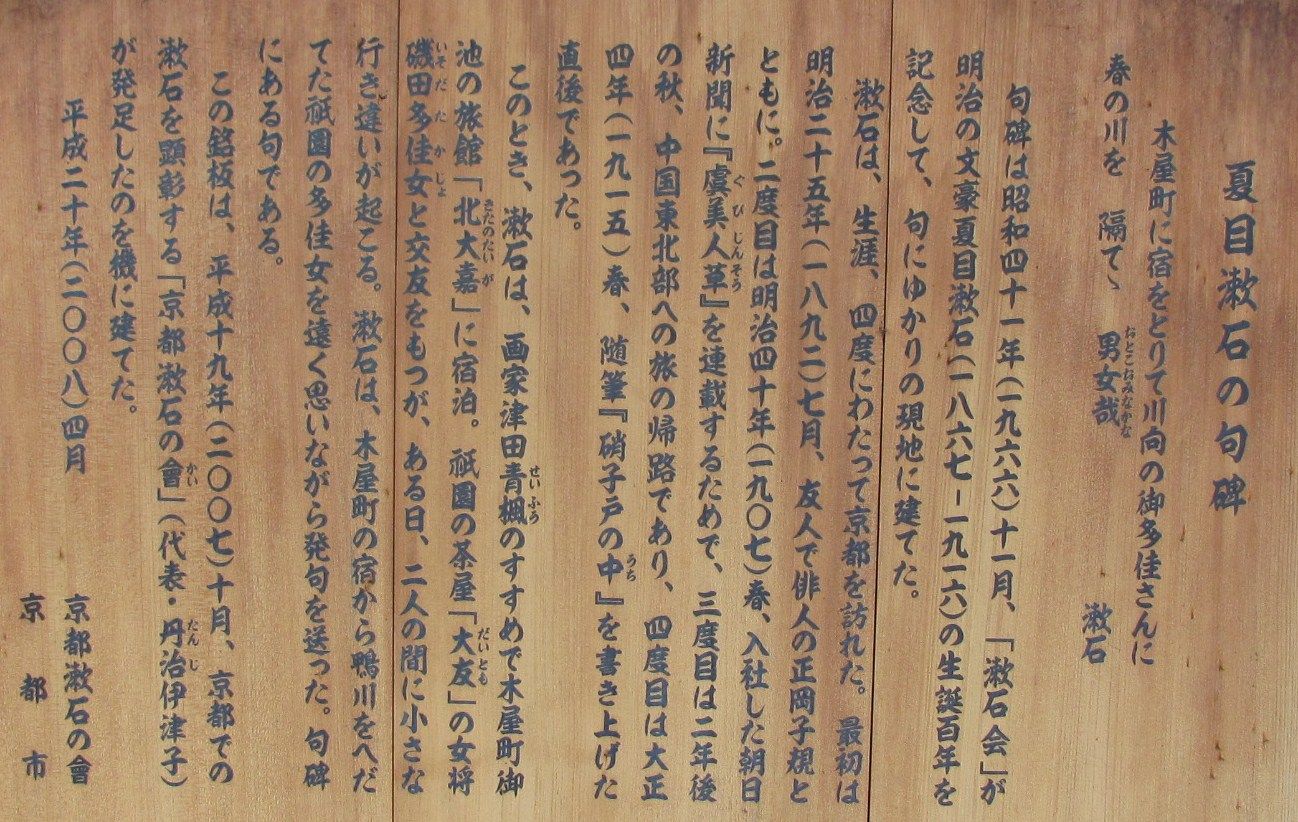 夏目漱石の句碑
木屋町に宿をとりて川向の御多佳さんに
春の川を　隔てゝ　男女哉　漱石
句碑は昭和四十一年(一九六六)十一月、「漱石会」が
明治の文豪夏目漱石(一八六七-一九一六)の生誕百年を
記念して、句にゆかりの現地に建てた。
漱石は、生涯、四度にわたって京都を訪れた。最初は
明治二十五年(一八九二)七月、友人で俳人の正岡子規と
ともに。二度目は明治四十年(一九〇七)春、入社した朝日
新聞に『虞美人草』を連載するためで、三度目は二年後
の秋、中国東北部への旅の帰路であり、四度目は大正
四年(一九一五)春、随筆『硝子戸の中』を書き上げた
直後であった。
このとき、漱石は、画家津田青楓のすすめで木屋町御
池の旅館「北大嘉」に宿泊。祇園の茶屋「大友」の女将
磯田多佳女と交友をもつが、ある日、二人の間に小さな
行き違いが起こる。漱石は、木屋町の宿から鴨川をへだ
てた祇園の多佳女を遠く思いながら発句を送った。句碑
にある句である。
この銘板は、平成十九年(二〇〇七)十月、京都での
漱石を顕彰する「京都漱石の會」(代表・丹治伊津子)
が発足したのを機に建てた。
平成二十年(二〇〇八)四月
京都漱石の會
京都市